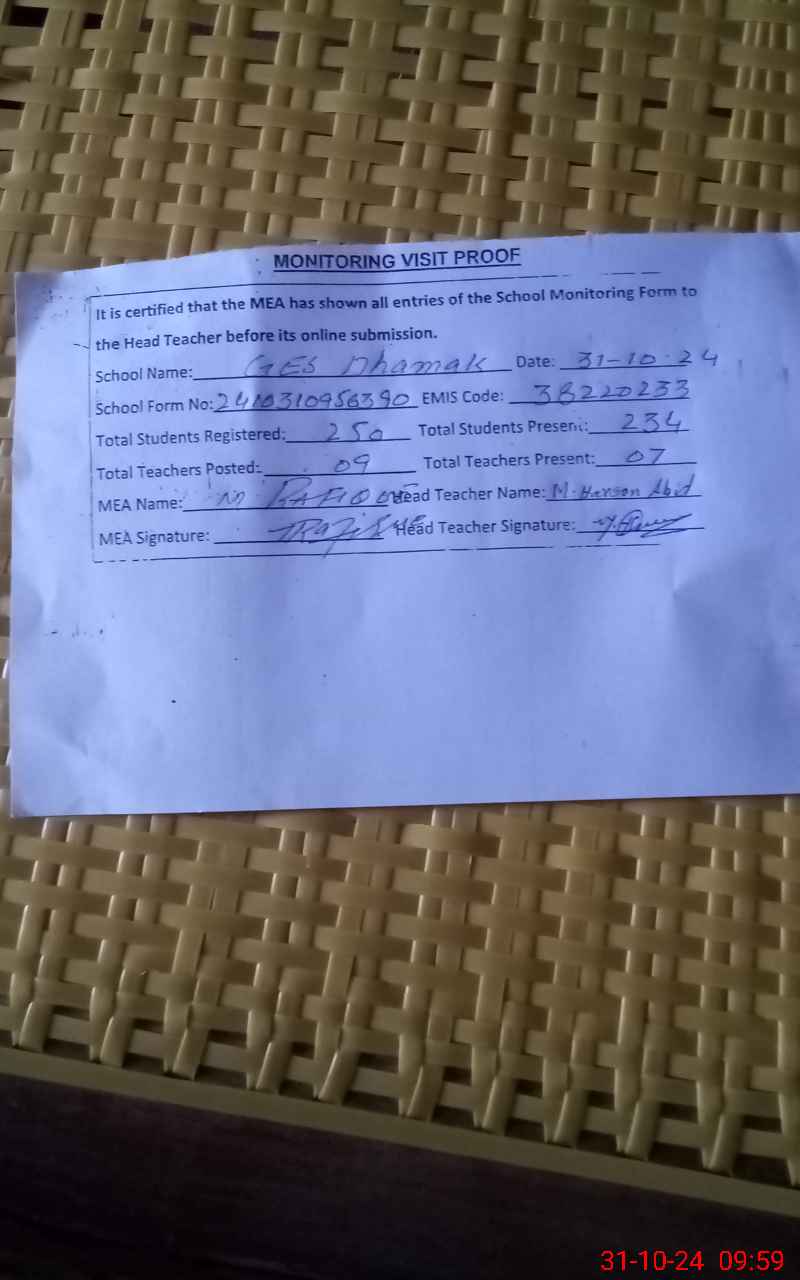 MONITORING VISIT PROOF
It is certified that the MEA has shown all entries of the School Monitoring Form to
the Head Teacher before its online submission.
School Name: GES Dhamak Date: 31-10-24
School Form No: 2410310956390 EMIS Code: 38220233
Total Students Registered: 250 Total Students Present: 234
Total Teachers Posted: 09 Total Teachers Present: 07
MEA Name: M Head Teacher Name: M. Hasson Abid
MEA Signature: Head Teacher Signature:
31-10-24 09:59